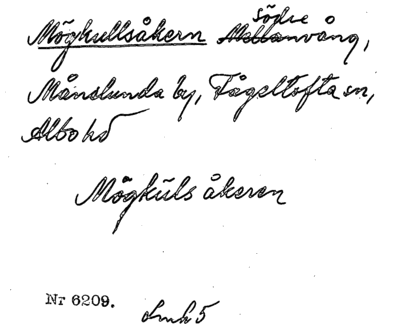 Mögkullsåkern Södre Mellanvång,
Månslunda by, Fågeltofta sn,
Albo hd
Mögkūls åkeren
Nr 6209.